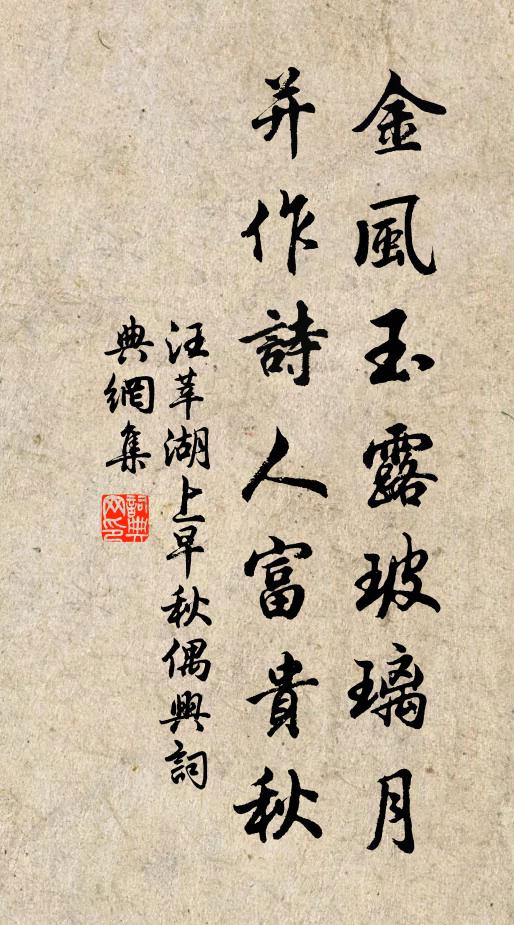 金風玉露玻璃月
并作詩人富貴秋
汪莘湖上早秋偶興詞
典網集
詞典网印